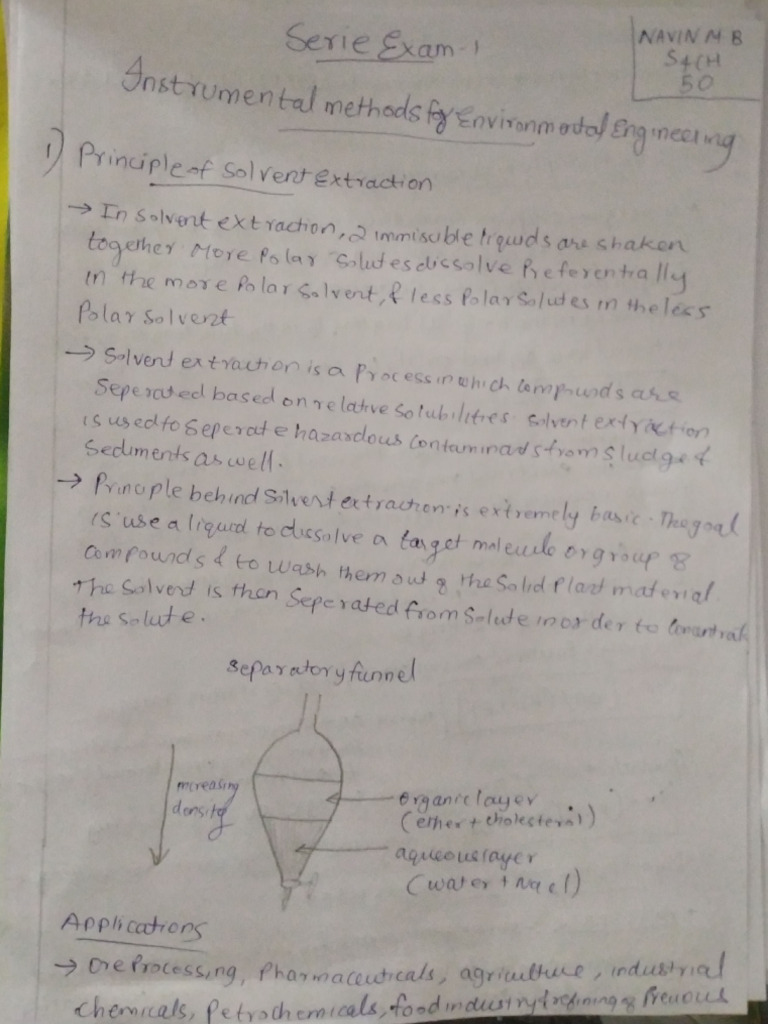 Serie Exam-1
NAVIN M B
S4CH
50
Instrumental methods for Environmental Engineering
1) Principle of solvent extraction
→ In solvent extraction, 2 immisuble liquids are shaken
together. More Polar solutes dissolve Preferentially
in the more Polar Solvent, & less Polar Solutes in the less
Polar solvent
→ Solvent extraction is a Process in which compounds are
Seperated based on relative solubilities. Solvent extraction
is used to seperate hazardous contaminants from sludge &
Sediments as well.
→ Principle behind Solvent extraction is extremely basic. The goal
is use a liquid to dissolve a target molecule or group of
compounds & to wash them out of the Solid Plant material.
The Solvent is then Seperated from Solute in order to
the solute.
separatory funnel
increasing
density
organic layer
(ether + cholesterol)
aqueous layer
(water + Nacl)
Applications
→ Ore Processing, Pharmaceuticals, agriculture, industrial
Chemicals, Petrochemicals, food industry & refining of